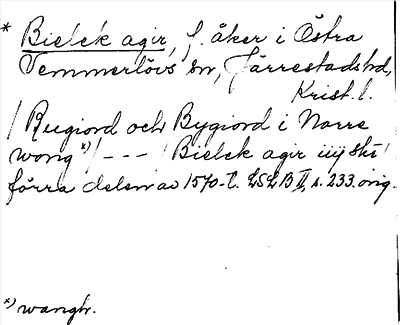 * Bielek agir, f. åker i Östra
Vemmerlövs sn, Järrestads hd,
Krist. l.
/ Rugiord och Bygiord i Norre
wong x) / - - - / Bielek agir iiij sk /
förra delen av 1570-t. LSLB II, s. 233. orig.
x) wangh.